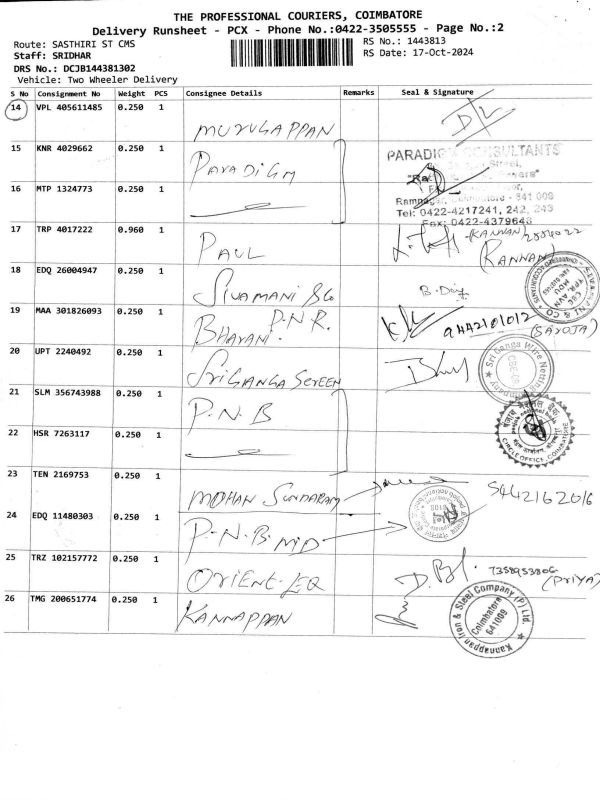 THE PROFESSIONAL COURIERS, COIMBATORE
Delivery Runsheet - PCX - Phone No.:0422-3505555 - Page No.:2
Route: SASTHIRI ST CMS
RS No.: 1443813
Staff: SRIDHAR
RS Date: 17-Oct-2024
DRS No.: DCJB144381302
Vehicle: Two Wheeler Delivery
S No Consignment No Weight PCS Consignee Details Remarks Seal & Signature
14 VPL 405611485 0.250 1 MURUGAPPAN
15 KNR 4029662 0.250 1 PARADIGM
PARADIGM CONSULTANTS
Street,
16 MTP 1324773 0.250 1
Coimbatore - 641 009
Tel: 0422-4217241, 242, 243
Fax: 0422-4379643
17 TRP 4017222 0.960 1 PAUL
(KANNAN)
18 EDQ 26004947 0.250 1 SIVAMANI & CO
19 MAA 301826093 0.250 1 BHAVANI P.N.R.
(SAROJA)
20 UPT 2240492 0.250 1 SRI GANGA SCREEN
Sri Ganga Wire Netting
21 SLM 356743988 0.250 1 P.N.B
CIRCLE OFFICE, COIMBATORE
22 HSR 7263117 0.250 1
23 TEN 2169753 0.250 1 MOHAN SUNDARAM
24 EDQ 11480303 0.250 1 P.N.B. MD
9442162016
25 TRZ 102157772 0.250 1 ORIENT. EQ
7358953806
(PRIYA)
26 TMG 200651774 0.250 1 KANNAPPAN
Kannappan Iron & Steel Company (P) Ltd.
Coimbatore
641009